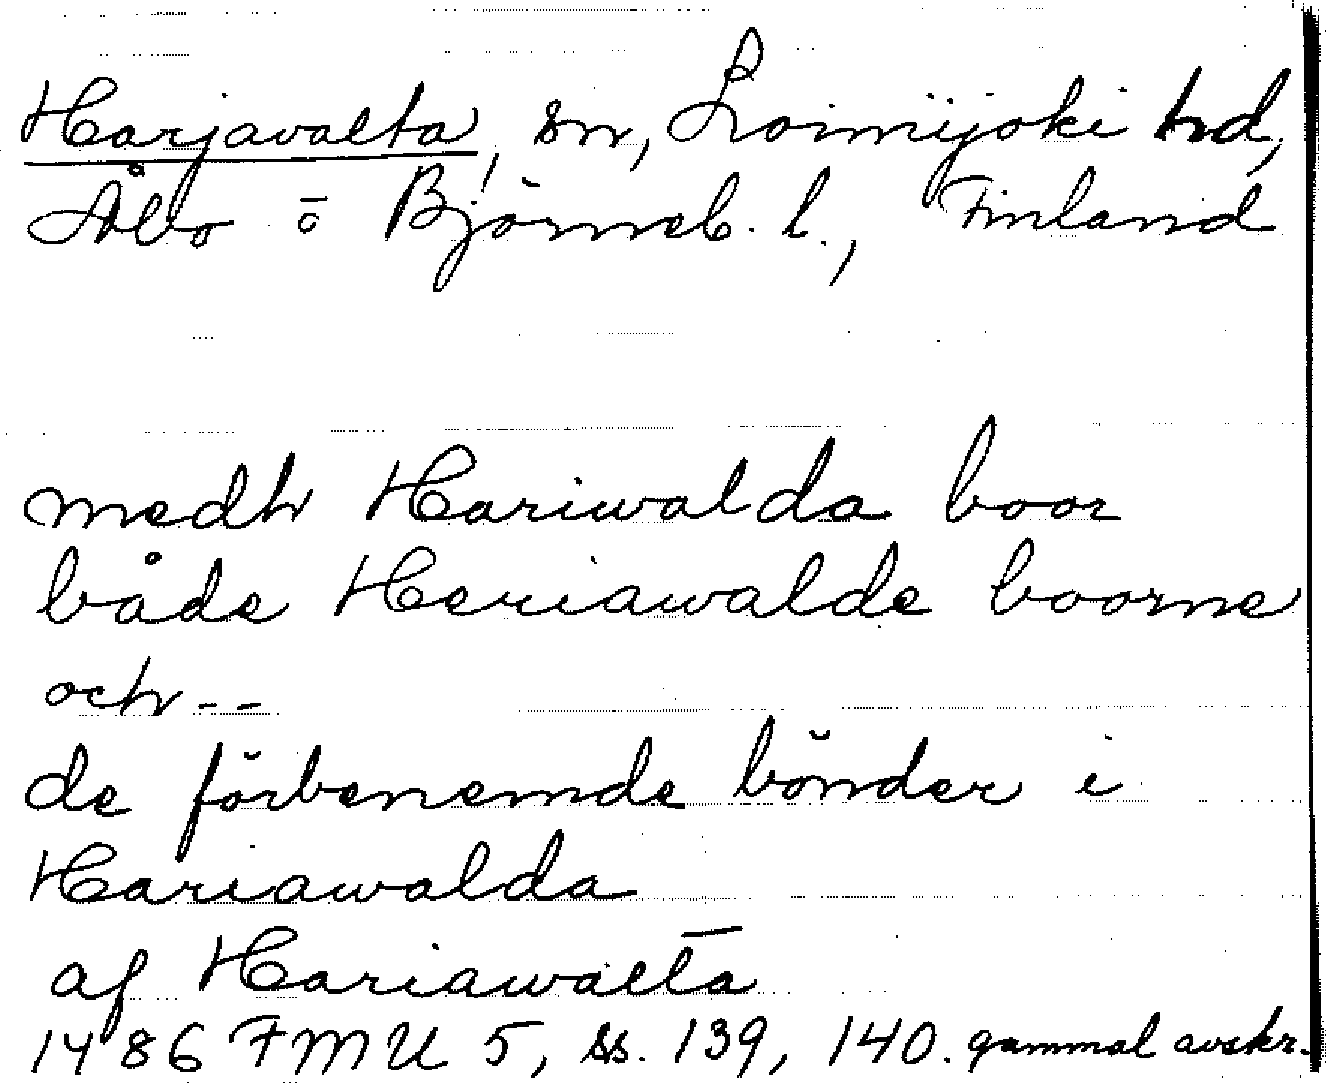 Harjavalta, sn, Loimijoki hd,
Åbo o Björneb. l., Finland
medh Hariwalda boor
både Heriawalde boorne
och --
de förbenemde bönder i
Hariawalda
af Hariawalta
1486 FMU 5, ss. 139, 140. gammal avskr.